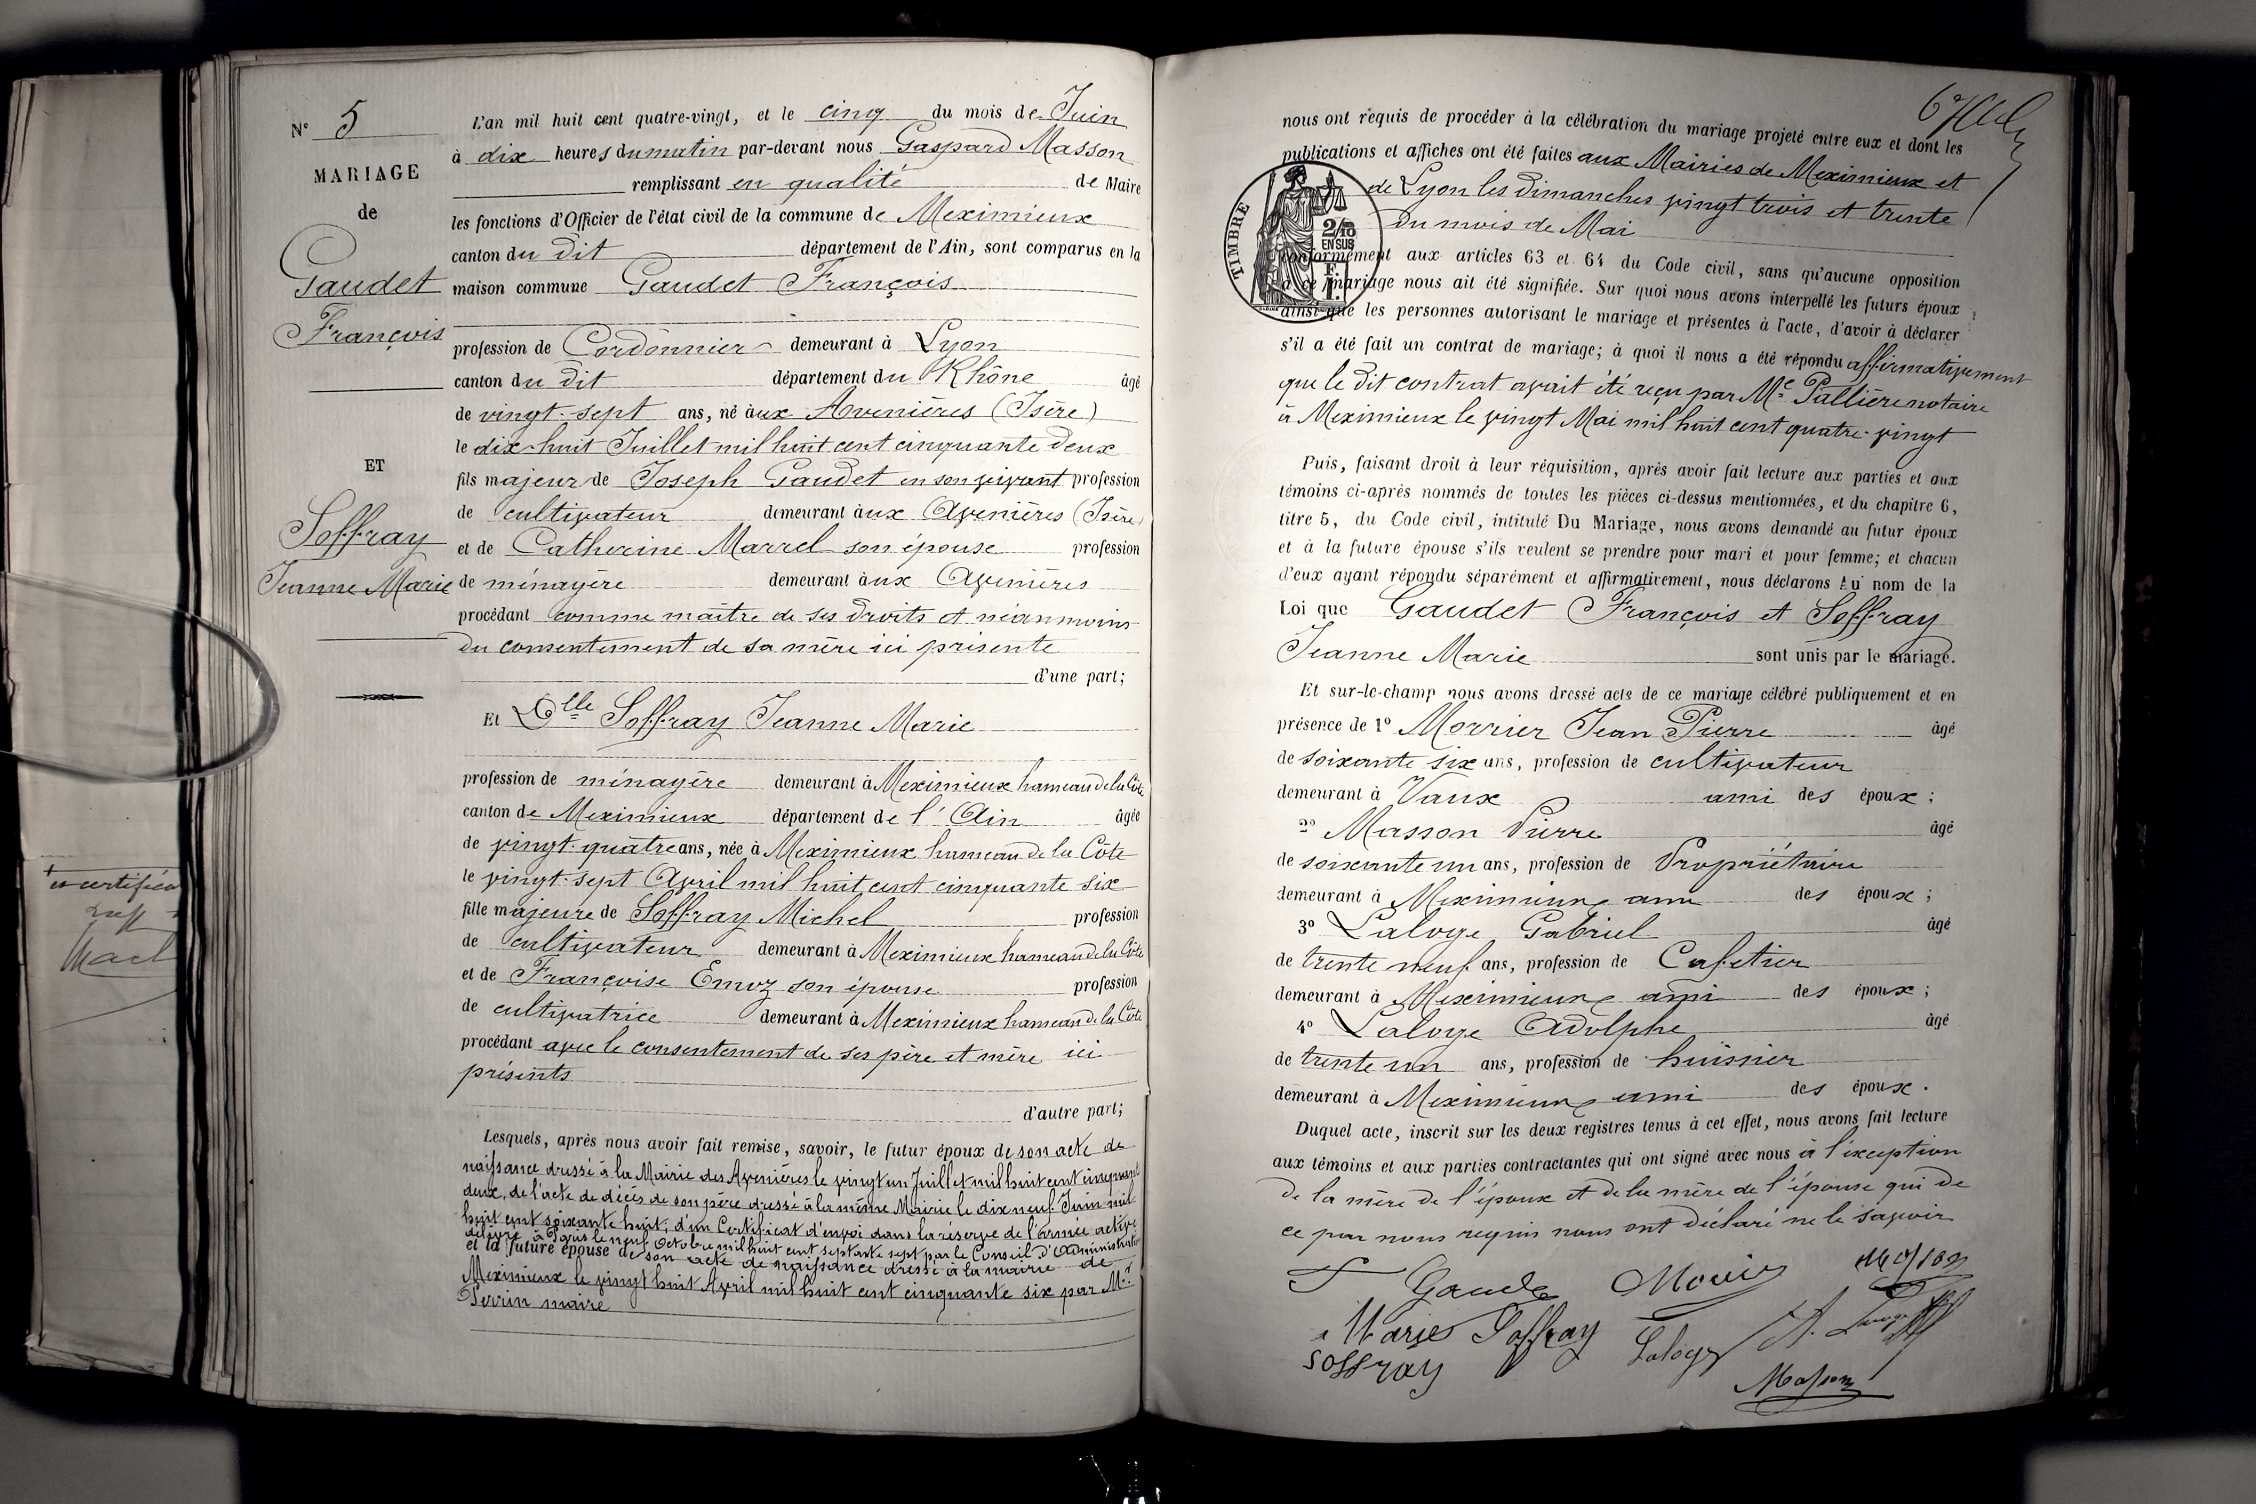 N° 5
MARIAGE
de
Gaudet
François
ET
Soffray
Jeanne Marie
L'an mil huit cent quatre-vingt, et le cinq du mois de Juin
à dix heures du matin par-devant nous Gaspard Masson
remplissant en qualité de Maire
les fonctions d'Officier de l'état civil de la commune de Meximieux
canton du dit département de l'Ain, sont comparus en la
maison commune Gaudet François
profession de Cordonnier demeurant à Lyon
canton du dit département du Rhône âgé
de vingt-sept ans, né aux Avenières (Isère)
le dix-huit Juillet mil huit cent cinquante deux
fils majeur de Joseph Gaudet en son vivant profession
de cultivateur demeurant aux Avenières (Isère)
et de Catherine Marrel son épouse profession
de ménagère demeurant aux Avenières
procédant comme maître de ses droits et néanmoins
du consentement de sa mère ici présente
d'une part;
Et Dlle Soffray Jeanne Marie
profession de ménagère demeurant à Meximieux hameau de la Côte
canton de Meximieux département de l'Ain âgée
de vingt-quatre ans, née à Meximieux hameau de la Côte
le vingt-sept Avril mil huit cent cinquante six
fille majeure de Soffray Michel profession
de cultivateur demeurant à Meximieux hameau de la Côte
et de Françoise Emoz son épouse profession
de cultivatrice demeurant à Meximieux hameau de la Côte
procédant avec le consentement de ses père et mère ici
présents
d'autre part;
Lesquels, après nous avoir fait remise, savoir, le futur époux de son acte de
naissance dressé à la Mairie des Avenières le vingt un Juillet mil huit cent cinquante
deux, de l'acte de décès de son père dressé à la même Mairie le dix neuf Juin mil
huit cent soixante huit; d'un Certificat d'envoi dans la réserve de l'armée active
délivré à Paris le neuf Octobre mil huit cent septante sept par le Conseil d'Administration
et la future épouse de son acte de naissance dressé à la mairie de
Meximieux le vingt huit Avril mil huit cent cinquante six par Mr
Perrin maire
nous ont requis de procéder à la célébration du mariage projeté entre eux et dont les
publications et affiches ont été faites aux Mairies de Meximieux et
de Lyon les dimanches vingt trois et trente
du mois de Mai
TIMBRE
2/10
EN SUS
conformément aux articles 63 et 64 du Code civil, sans qu'aucune opposition
à ce mariage nous ait été signifiée. Sur quoi nous avons interpellé les futurs époux
ainsi que les personnes autorisant le mariage et présentes à l'acte, d'avoir à déclarer
s'il a été fait un contrat de mariage; à quoi il nous a été répondu affirmativement
que le dit contrat avait été reçu par Me Pallière notaire
à Meximieux le vingt Mai mil huit cent quatre-vingt
Puis, faisant droit à leur réquisition, après avoir fait lecture aux parties et aux
témoins ci-après nommés de toutes les pièces ci-dessus mentionnées, et du chapitre 6,
titre 5, du Code civil, intitulé Du Mariage, nous avons demandé au futur époux
et à la future épouse s'ils veulent se prendre pour mari et pour femme; et chacun
d'eux ayant répondu séparément et affirmativement, nous déclarons au nom de la
Loi que Gaudet François et Soffray
Jeanne Marie sont unis par le mariage.
Et sur-le-champ nous avons dressé acte de ce mariage célébré publiquement et en
présence de 1° Morrier Jean Pierre âgé
de soixante six ans, profession de cultivateur
demeurant à Vaux ami des époux;
2° Masson Pierre âgé
de soixante un ans, profession de Propriétaire
demeurant à Meximieux ami des époux;
3° Laloge Gabriel âgé
de trente neuf ans, profession de Cafetier
demeurant à Meximieux ami des époux;
4° Laloge Adolphe âgé
de trente un ans, profession de huissier
demeurant à Meximieux ami des époux.
Duquel acte, inscrit sur les deux registres tenus à cet effet, nous avons fait lecture
aux témoins et aux parties contractantes qui ont signé avec nous à l'exception
de la mère de l'époux et de la mère de l'épouse qui de
ce par nous requis nous ont déclaré ne le savoir
Marie Soffray
soffray
Laloge
Masson